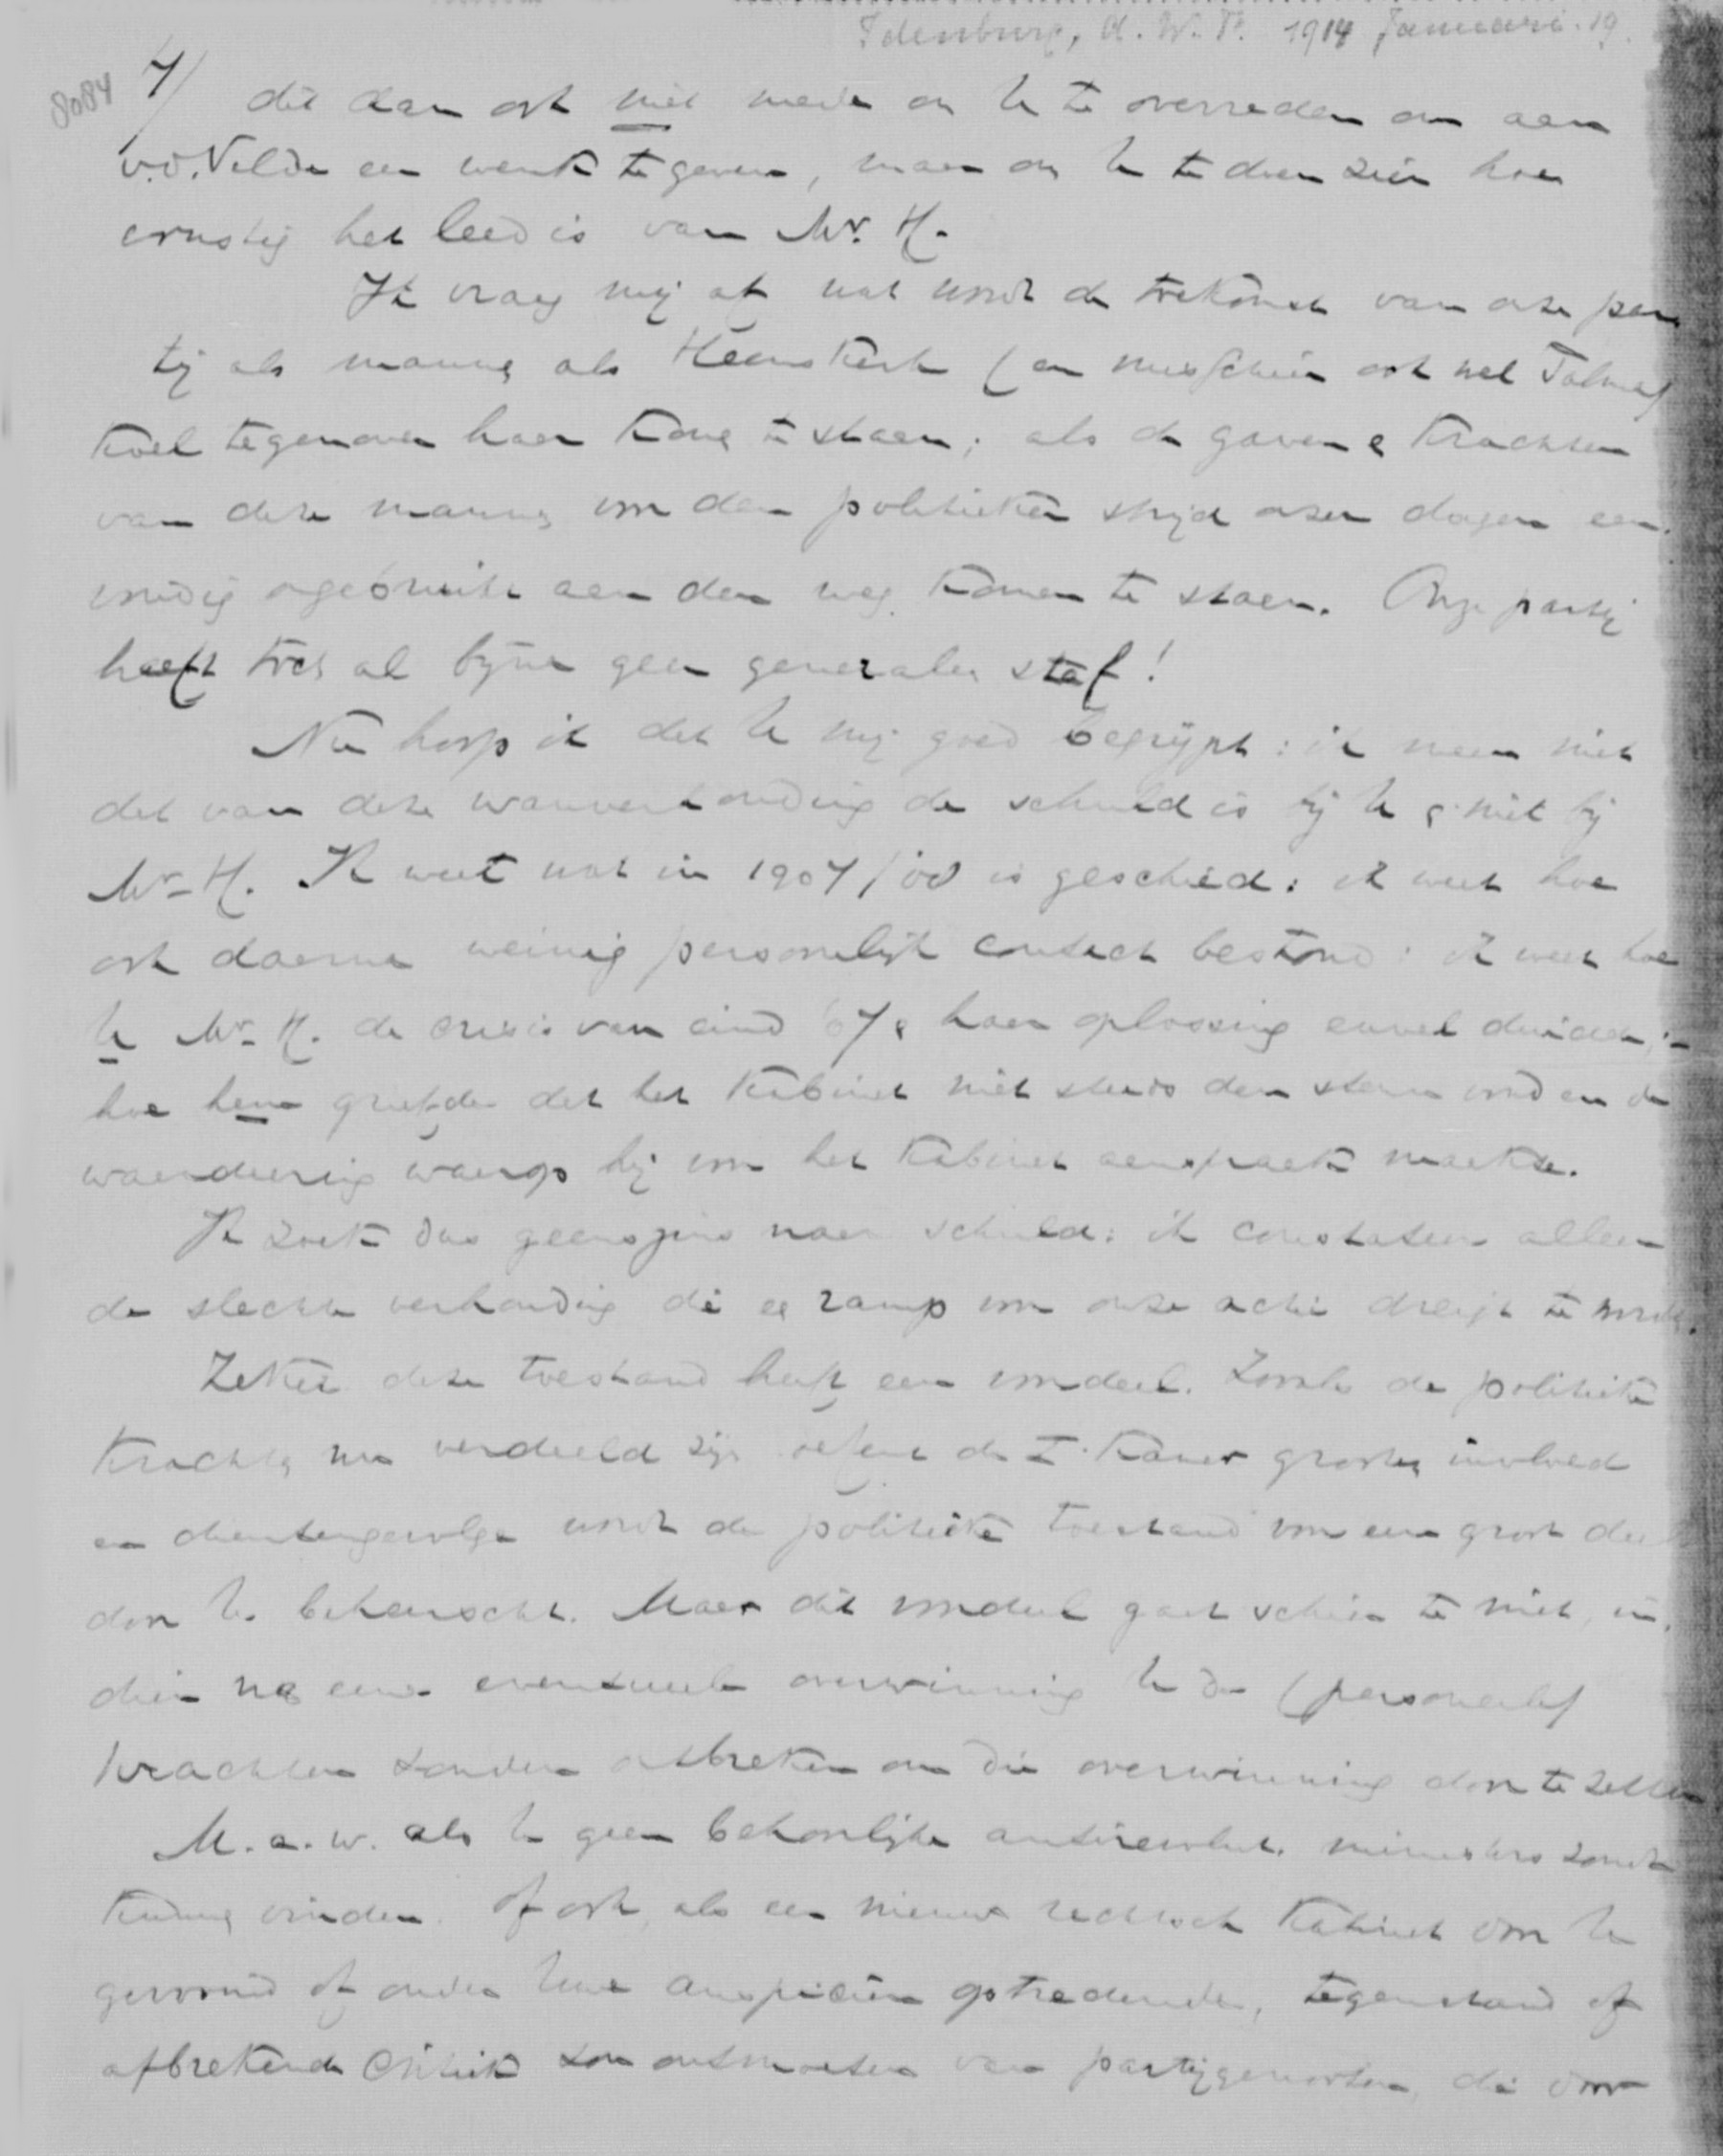 Idenburg, A.W.F. 1914 Januari. 19.
8084
7/ dit dan ook niet mede om U te overreden om aan
v.d. Velde een wenk te geven, maar om U te doen zien hoe
ernstig het leed is van Mr. H.
Ik vraag mij af wat wordt de toekomst van onze par
tij als mannen als Heemskerk (en misschien ook wel Talma)
koel tegenover haar komen te staan; als de gaven & krachten
van deze mannen voor den politieken strijd onzer dagen een-
voudig ongebruikt aan den weg komen te staan. Onze partij
heeft toch al bijna geen generalen staf!
Nu hoop ik dat U mij goed begrijpt: ik meen niet
dat van deze wanverhouding de schuld is bij U & niet bij
Mr. H. Ik weet wat in 1907/08 is geschied: ik weet hoe
ook daarna weinig persoonlijk contact bestond: ik weet hoe
U Mr. H. de crisis van eind 07 & haar oplossing euvel duidde,
hoe hem griefde dat het Kabinet niet steeds den steun vond en de
waardeering waarop hij voor het Kabinet aanspraak maakte.
Ik zoek dus geenszins naar schuld: ik constateer alleen
de slechte verhouding die een ramp voor onze actie dreigt te worden.
Zeker deze toestand heeft een voordeel. Zooals de politieke
krachten nu verdeeld zijn oefent de I. Kamer grooten invloed
en dientengevolge wordt de politieke toestand voor een groot deel
door U beheerscht. Maar dit voordeel gaat schier te niet, in-
dien na eene eventueele overwinning U de (personeele)
krachten zouden ontbreken om die overwinning door te zetten
M.a.w. als U geen behoorlijke antirevolut. ministers zoudt
kunnen vinden. Of ook, als een nieuw rechtsch Kabinet door U
gevormd of onder Uwe auspiciën optredende, tegenstand of
afbrekende critiek zou ontmoeten van partijgenooten, die voor